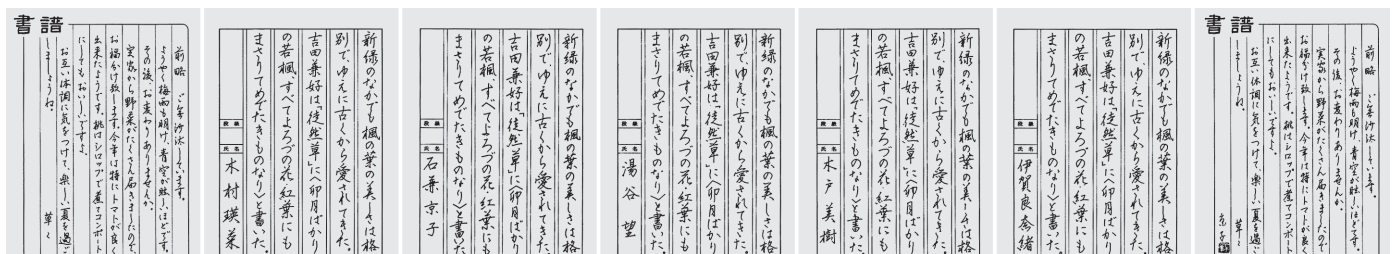 書譜
前略 ご無沙汰しています。
ようやく梅雨も明け、青空が眩しいほどです。
その後、お変わりありませんか。
実家から野菜がたくさん届きましたので、
お福分け致します。今年は特にトマトが良く
出来たようです。桃はシロップで煮てコンポート
にしてもおいしいですよ。
お互い体調に気をつけて、楽しい夏を過ご
しましょうね。
草々
新緑のなかでも楓の葉の美しさは格
別で、ゆえに古くから愛されてきた。
吉田兼好は「徒然草」に〈卯月ばかり
の若楓、すべてよろづの花紅葉にも
まさりてめでたきものなり〉と書いた。
段級
氏名
木村瑛菜
新緑のなかでも楓の葉の美しさは格
別で、ゆえに古くから愛されてきた。
吉田兼好は「徒然草」に〈卯月ばかり
の若楓、すべてよろづの花紅葉にも
まさりてめでたきものなり〉と書いた。
段級
氏名
石兼京子
新緑のなかでも楓の葉の美しさは格
別で、ゆえに古くから愛されてきた。
吉田兼好は「徒然草」に〈卯月ばかり
の若楓、すべてよろづの花紅葉にも
まさりてめでたきものなり〉と書いた。
段級
氏名
湯谷望
新緑のなかでも楓の葉の美しさは格
別で、ゆえに古くから愛されてきた。
吉田兼好は「徒然草」に〈卯月ばかり
の若楓、すべてよろづの花紅葉にも
まさりてめでたきものなり〉と書いた。
段級
氏名
水戸美樹
新緑のなかでも楓の葉の美しさは格
別で、ゆえに古くから愛されてきた。
吉田兼好は「徒然草」に〈卯月ばかり
の若楓、すべてよろづの花紅葉にも
まさりてめでたきものなり〉と書いた。
段級
氏名
伊賀良奈緒
書譜
前略 ご無沙汰しています。
ようやく梅雨も明け、青空が眩しいほどです。
その後、お変わりありませんか。
実家から野菜がたくさん届きましたので
お福分け致します。今年は特にトマトが良く
出来たようです。桃はシロップで煮てコンポート
にしてもおいしいですよ。
お互い体調に気をつけて、楽しい夏を過ご
しましょうね。
草々
京子